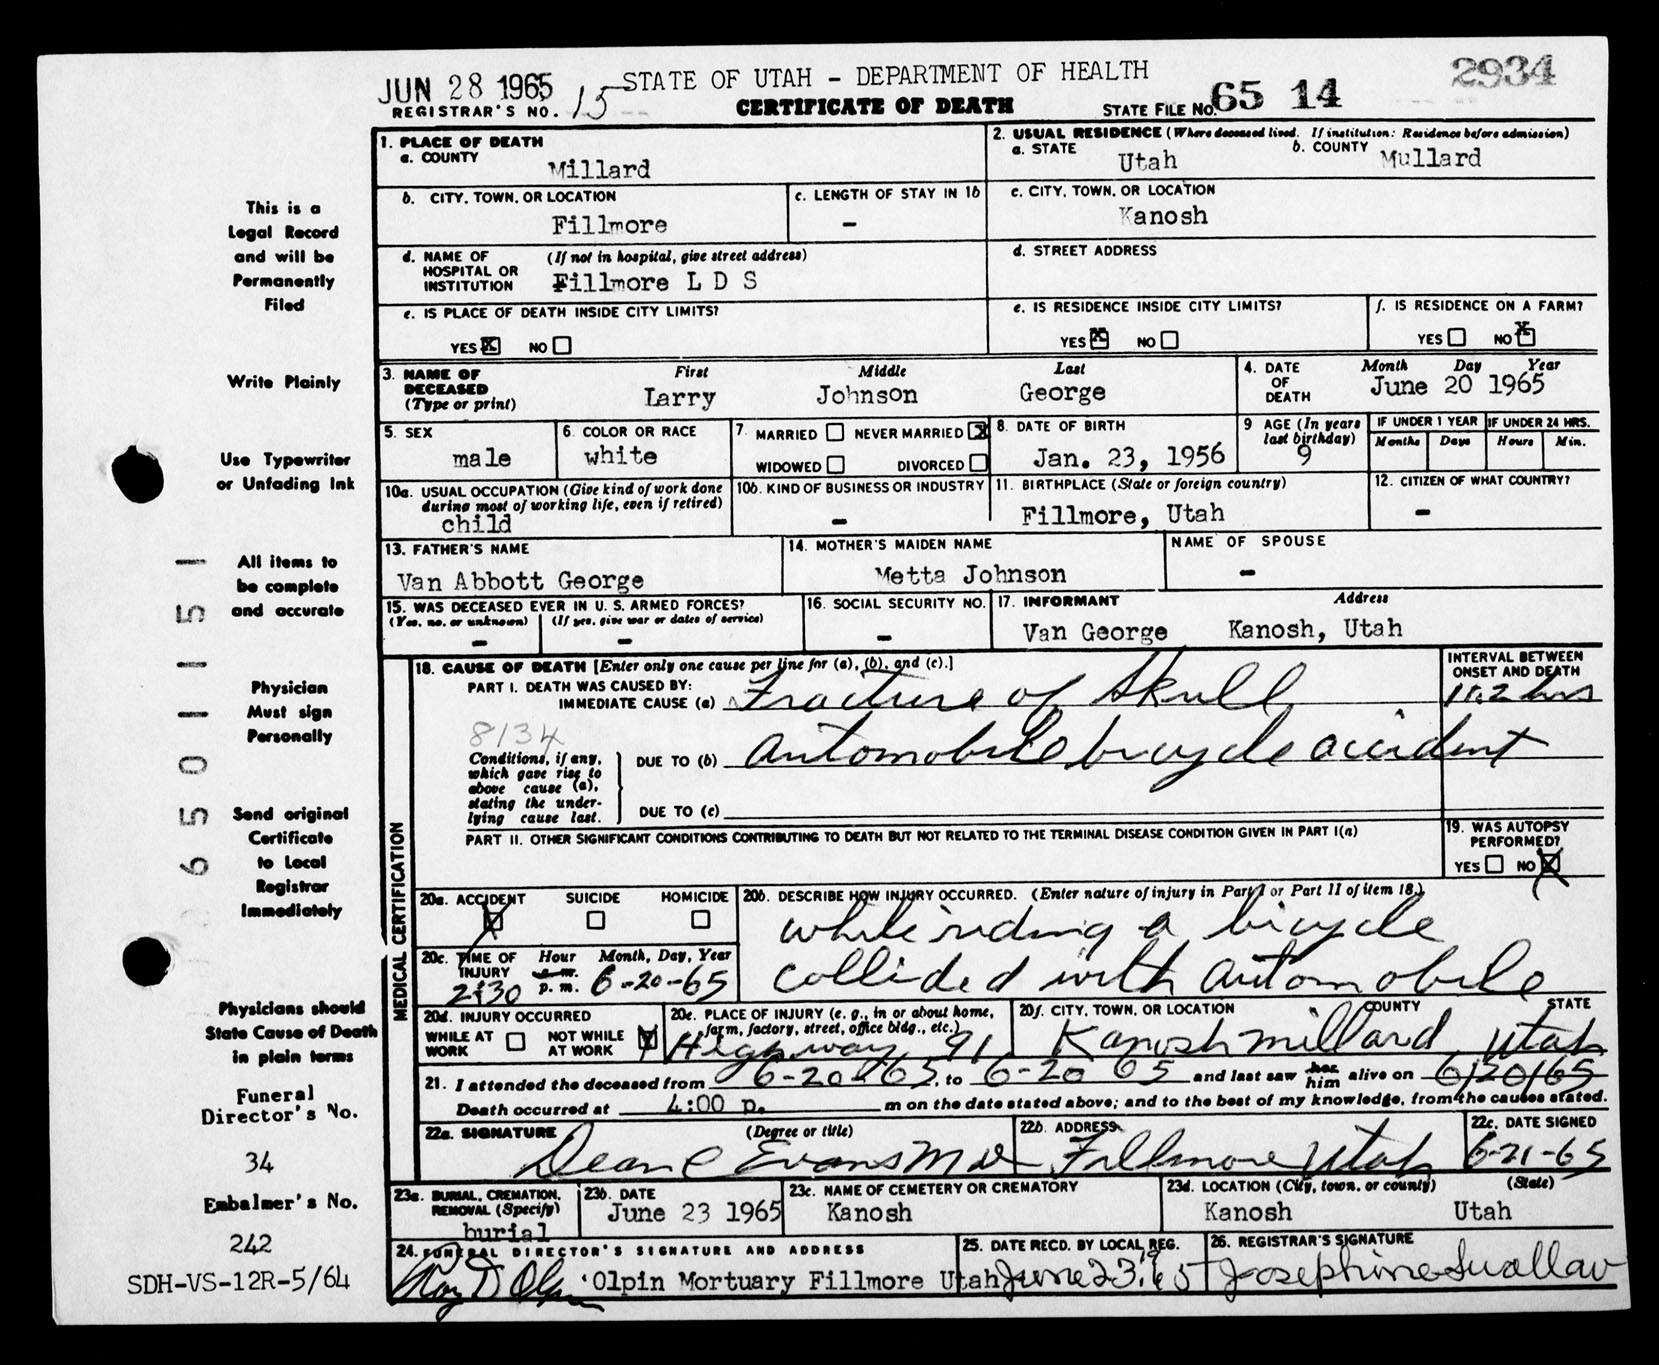 JUN 28 1965 STATE OF UTAH - DEPARTMENT OF HEALTH 2934
REGISTRAR'S NO. 15 CERTIFICATE OF DEATH STATE FILE NO. 65 14
1. PLACE OF DEATH
a. COUNTY
Millard
2. USUAL RESIDENCE (Where deceased lived. If institution: Residence before admission)
a. STATE Utah b. COUNTY Mullard
b. CITY, TOWN, OR LOCATION
Fillmore
c. LENGTH OF STAY IN 1b
-
c. CITY, TOWN, OR LOCATION
Kanosh
d. NAME OF HOSPITAL OR INSTITUTION (If not in hospital, give street address)
Fillmore L D S
d. STREET ADDRESS
e. IS PLACE OF DEATH INSIDE CITY LIMITS?
YES X NO
e. IS RESIDENCE INSIDE CITY LIMITS?
YES X NO
f. IS RESIDENCE ON A FARM?
YES NO X
3. NAME OF DECEASED (Type or print) First Middle Last
Larry Johnson George
4. DATE OF DEATH Month Day Year
June 20 1965
5. SEX
male
6. COLOR OR RACE
white
7. MARRIED NEVER MARRIED X
WIDOWED DIVORCED
8. DATE OF BIRTH
Jan. 23, 1956
9 AGE (In years last birthday)
9
IF UNDER 1 YEAR IF UNDER 24 HRS.
Months Days Hours Min.
10a. USUAL OCCUPATION (Give kind of work done during most of working life, even if retired)
child
10b. KIND OF BUSINESS OR INDUSTRY
-
11. BIRTHPLACE (State or foreign country)
Fillmore, Utah
12. CITIZEN OF WHAT COUNTRY?
-
13. FATHER'S NAME
Van Abbott George
14. MOTHER'S MAIDEN NAME
Metta Johnson
NAME OF SPOUSE
-
15. WAS DECEASED EVER IN U. S. ARMED FORCES?
(Yes, no, or unknown) (If yes, give war or dates of service)
- -
16. SOCIAL SECURITY NO.
-
17. INFORMANT Address
Van George Kanosh, Utah
MEDICAL CERTIFICATION
18. CAUSE OF DEATH [Enter only one cause per line for (a), (b), and (c).]
INTERVAL BETWEEN ONSET AND DEATH
PART I. DEATH WAS CAUSED BY:
IMMEDIATE CAUSE (a) Fracture of Skull hrs
8134
Conditions, if any, which gave rise to above cause (a), stating the underlying cause last.
DUE TO (b) automobile bicycle accident
DUE TO (c)
PART II. OTHER SIGNIFICANT CONDITIONS CONTRIBUTING TO DEATH BUT NOT RELATED TO THE TERMINAL DISEASE CONDITION GIVEN IN PART I(a)
19. WAS AUTOPSY PERFORMED?
YES NO X
20a. ACCIDENT X SUICIDE HOMICIDE
20b. DESCRIBE HOW INJURY OCCURRED. (Enter nature of injury in Part I or Part II of item 18.)
while riding a bicycle
collided with automobile
20c. TIME OF INJURY Hour Month, Day, Year
2:30 a.m. p.m. 6-20-65
20d. INJURY OCCURRED
WHILE AT WORK NOT WHILE AT WORK
20e. PLACE OF INJURY (e. g., in or about home, farm, factory, street, office bldg., etc.)
Highway 91
20f. CITY, TOWN, OR LOCATION COUNTY STATE
Kanosh Millard Utah
21. I attended the deceased from 6-20-65, to 6-20 65 and last saw her him alive on 6/20/65
Death occurred at 4:00 p. m on the date stated above; and to the best of my knowledge, from the causes stated.
22a. SIGNATURE (Degree or title)
Dean C Evans MD
22b. ADDRESS
Fillmore Utah
22c. DATE SIGNED
6-21-65
23a. BURIAL, CREMATION, REMOVAL (Specify)
burial
23b. DATE
June 23 1965
23c. NAME OF CEMETERY OR CREMATORY
Kanosh
23d. LOCATION (City, town, or county) (State)
Kanosh Utah
24. FUNERAL DIRECTOR'S SIGNATURE AND ADDRESS
Roy D Olpin Olpin Mortuary Fillmore Utah
25. DATE RECD. BY LOCAL REG.
June 23, 1965
26. REGISTRAR'S SIGNATURE
Josephine Swallow
This is a
Legal Record
and will be
Permanently
Filed
Write Plainly
Use Typewriter
or Unfading Ink
All items to
be complete
and accurate
Physician
Must sign
Personally
Send original
Certificate
to Local
Registrar
Immediately
Physicians should
State Cause of Death
in plain terms
Funeral
Director's No.
34
Embalmer's No.
242
SDH-VS-12R-5/64
6 5 0 1 1 5 1